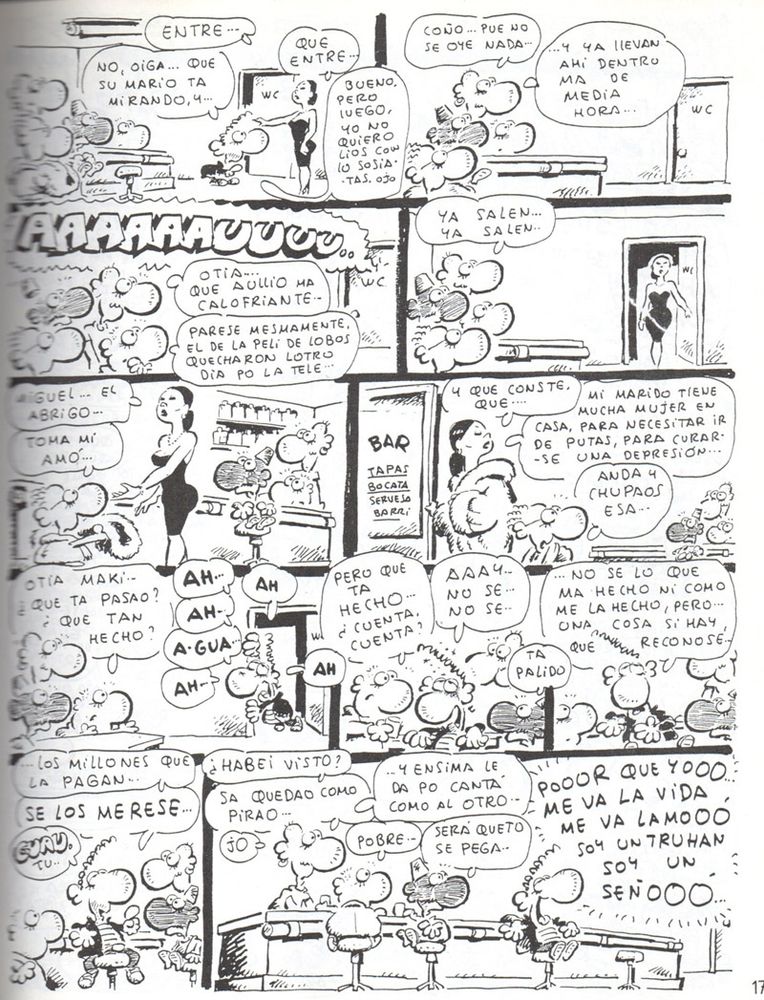 ENTRE...
NO, OIGA... QUE
SU MARIO TA
MIRANDO, Y...
QUE
ENTRE...
WC
BUENO,
PERO
LUEGO,
YO NO
QUIERO
LIOS CON
LO SOSIA-
-TAS. OJO
COÑO... PUE NO
SE OYE NADA...
...Y YA LLEVAN
AHI DENTRO
MA DE
MEDIA
HORA...
WC
AAAAAAAUUUUU..
WC
OTIA...
QUE AULLIO MA
CALOFRIANTE...
PARESE MESMAMENTE,
EL DE LA PELI DE LOBOS
QUECHARON LOTRO
DIA PO LA TELE...
YA SALEN...
YA SALEN...
WC
MIGUEL... EL
ABRIGO...
TOMA MI
AMO...
BAR
TAPAS
BOCATA
SERVESA
BARRI
Y QUE CONSTE,
QUE...
MI MARIDO TIENE
MUCHA MUJER EN
CASA, PARA NECESITAR IR
DE PUTAS, PARA CURAR-
-SE UNA DEPRESIÓN...
ANDA Y
CHUPAOS
ESA...
OTIA MAKI...
¿QUE TA PASAO?
¿QUE TAN
HECHO?
AH...
AH-
A-GUA...
AH--
AH
AH
PERO QUE
TA
HECHO...
¿CUENTA,
CUENTA?
AAAY...
NO SE...
NO SE..
TA
PALIDO
...NO SE LO QUE
MA HECHO NI COMO
ME LA HECHO, PERO...
UNA COSA SI HAY
QUE RECONOSE..
...LOS MILLONES QUE
LA PAGAN...
SE LOS MERESE...
GUAU,
TU..
¿HABEI VISTO?
SA QUEDAO COMO
PIRAO...
JO
...Y ENSIMA LE
DA PO CANTÁ
COMO AL OTRO...
POBRE...
SERÁ QUETO
SE PEGA...
POOOR QUE YOOO...
ME VA LA VIDA
ME VA LAMOOO
SOY UN TRUHAN
SOY UN
SEÑOOO...
17